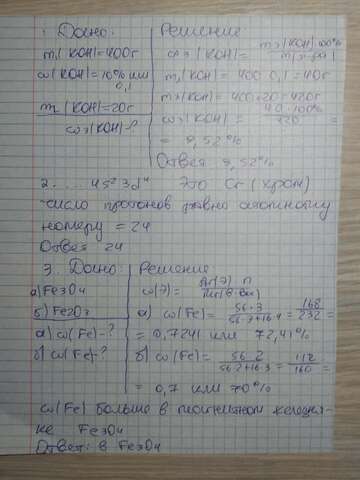 1. Дано:
m1(KOH)=400г
ω1(KOH)=10% или
0,1
m2(KOH)=20г
ω3(KOH)-?
Решение
ω3(KOH)= m3(KOH)·100% / m(р-ра)
m1(KOH)=400·0,1=40г
m3(KOH)=400+20=420г
ω3(KOH)= 40·100% / 420 =
= 9,52%
Ответ 9,52%
2. ... 4s² 3d⁴ Это Cr (хром)
число протонов равно атомному
номеру = 24
Ответ 24
3. Дано:
а) Fe3O4
б) Fe2O3
а) ω(Fe)-?
б) ω(Fe)-?
Решение
ω(Э)= Ar(Э)·n / Mr(в-ва)
а) ω(Fe)= 56·3 / 56·3+16·4 = 168 / 232 =
= 0,7241 или 72,41%
б) ω(Fe)= 56·2 / 56·2+16·3 = 112 / 160 =
= 0,7 или 70%
ω(Fe) больше в магнитном железня-
ке Fe3O4
Ответ: в Fe3O4